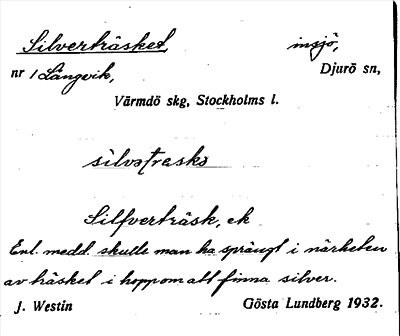 Silverträsket, insjö,
nr 1 Långvik, Djurö sn,
Värmdö skg, Stockholms l.
silvətrɛskə
Silfverträsk, ek
Enl. medd. skulle man ha sprängt i närheten
av träsket i hopp om att finna silver.
J. Westin Gösta Lundberg 1932.